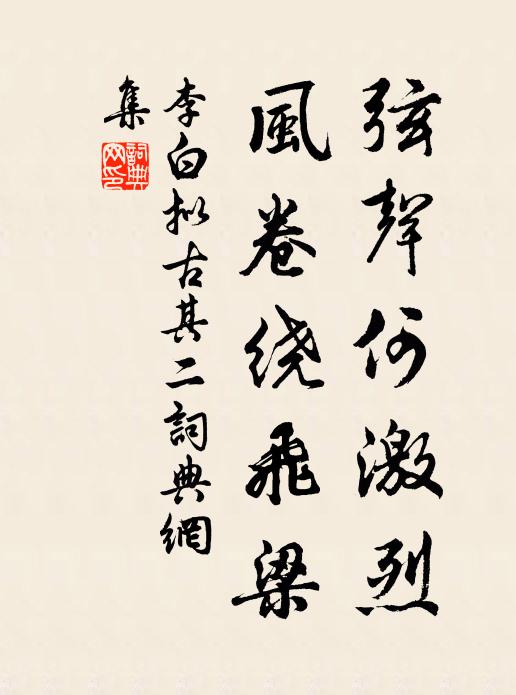 弦聲何激烈
風卷绕飛梁
李白拟古其二詞典網
集
詞典網印